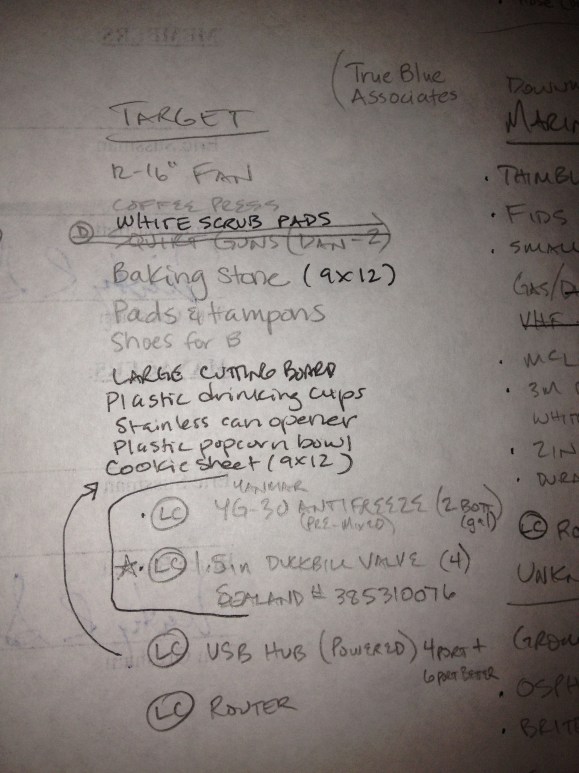 (True Blue
Associates
TARGET
12-16" FAN
COFFEE PRESS
WHITE SCRUB PADS
D SQUIRT GUNS (DAN-2)
Baking Stone (9x12)
Pads & tampons
Shoes for B
LARGE CUTTING BOARD
Plastic drinking cups
Stainless can opener
Plastic popcorn bowl
Cookie sheet (9x12)
YANMAR
· LC YG-30 ANTIFREEZE (2 BOTT
(PRE-MIXED) (gal)
☆· LC 1.5in DUCKBILL VALVE (4)
SEALAND # 385310076
LC USB HUB (POWERED) 4 PORT +
6 PORT BETTER
LC ROUTER
MARIN
· THIMBL
· FIDS
· SMALL
GAS/D
VHF
· MCL
· 3M
WHIT
· ZIN
· DURA
LC RO
UNKN
GROU
· OSPH
· BRITE